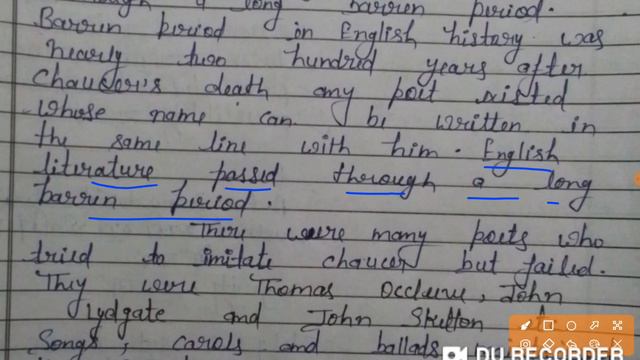 a long barren period.
Barren period in English history was
nearly two hundred years after
Chaucer's death any poet existed
whose name can be written in
the same line with him. English
literature passed through a long
barren period.
There were many poets who
tried to imitate chaucer but failed.
They were Thomas Occleve, John
Lydgate and John Skelton
Songs, carols and ballads
DU RECORDER